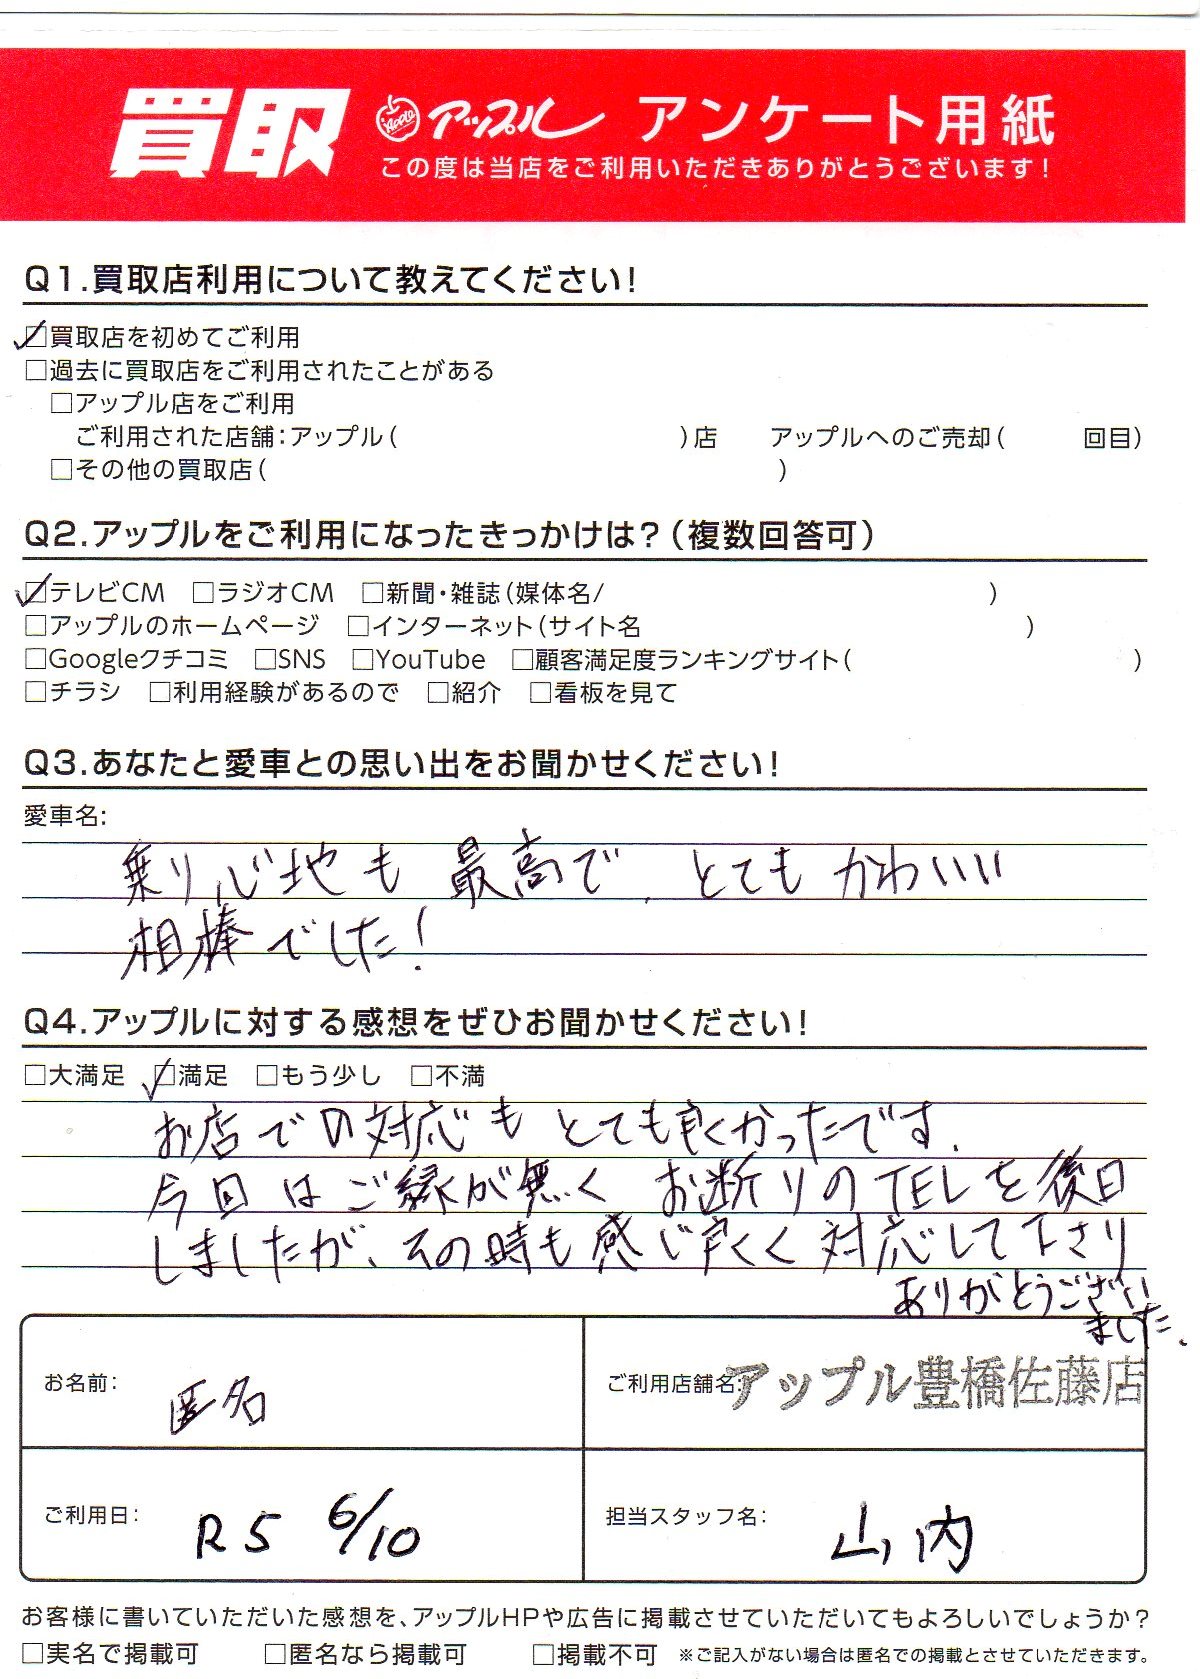 買取 Apple アップル アンケート用紙
この度は当店をご利用いただきありがとうございます!
Q1.買取店利用について教えてください!
☑買取店を初めてご利用
□過去に買取店をご利用されたことがある
□アップル店をご利用
ご利用された店舗:アップル( )店 アップルへのご売却( 回目)
□その他の買取店( )
Q2.アップルをご利用になったきっかけは?(複数回答可)
☑テレビCM □ラジオCM □新聞・雑誌(媒体名/ )
□アップルのホームページ □インターネット(サイト名 )
□Googleクチコミ □SNS □YouTube □顧客満足度ランキングサイト( )
□チラシ □利用経験があるので □紹介 □看板を見て
Q3.あなたと愛車との思い出をお聞かせください!
愛車名:
乗り心地も最高で、とてもかわいい
相棒でした!
Q4.アップルに対する感想をぜひお聞かせください!
□大満足 ☑満足 □もう少し □不満
お店での対応もとても良くかったです.
今回はご縁が無くお断りのTELを後日
しましたが、その時も感じ良くく対応して下さり
ありがとうござい
ました、
お名前: 匿名 ご利用店舗名:アップル豊橋佐藤店
ご利用日: R5 6/10 担当スタッフ名: 山内
お客様に書いていただいた感想を、アップルHPや広告に掲載させていただいてもよろしいでしょうか?
□実名で掲載可 □匿名なら掲載可 □掲載不可 ※ご記入がない場合は匿名での掲載とさせていただきます。